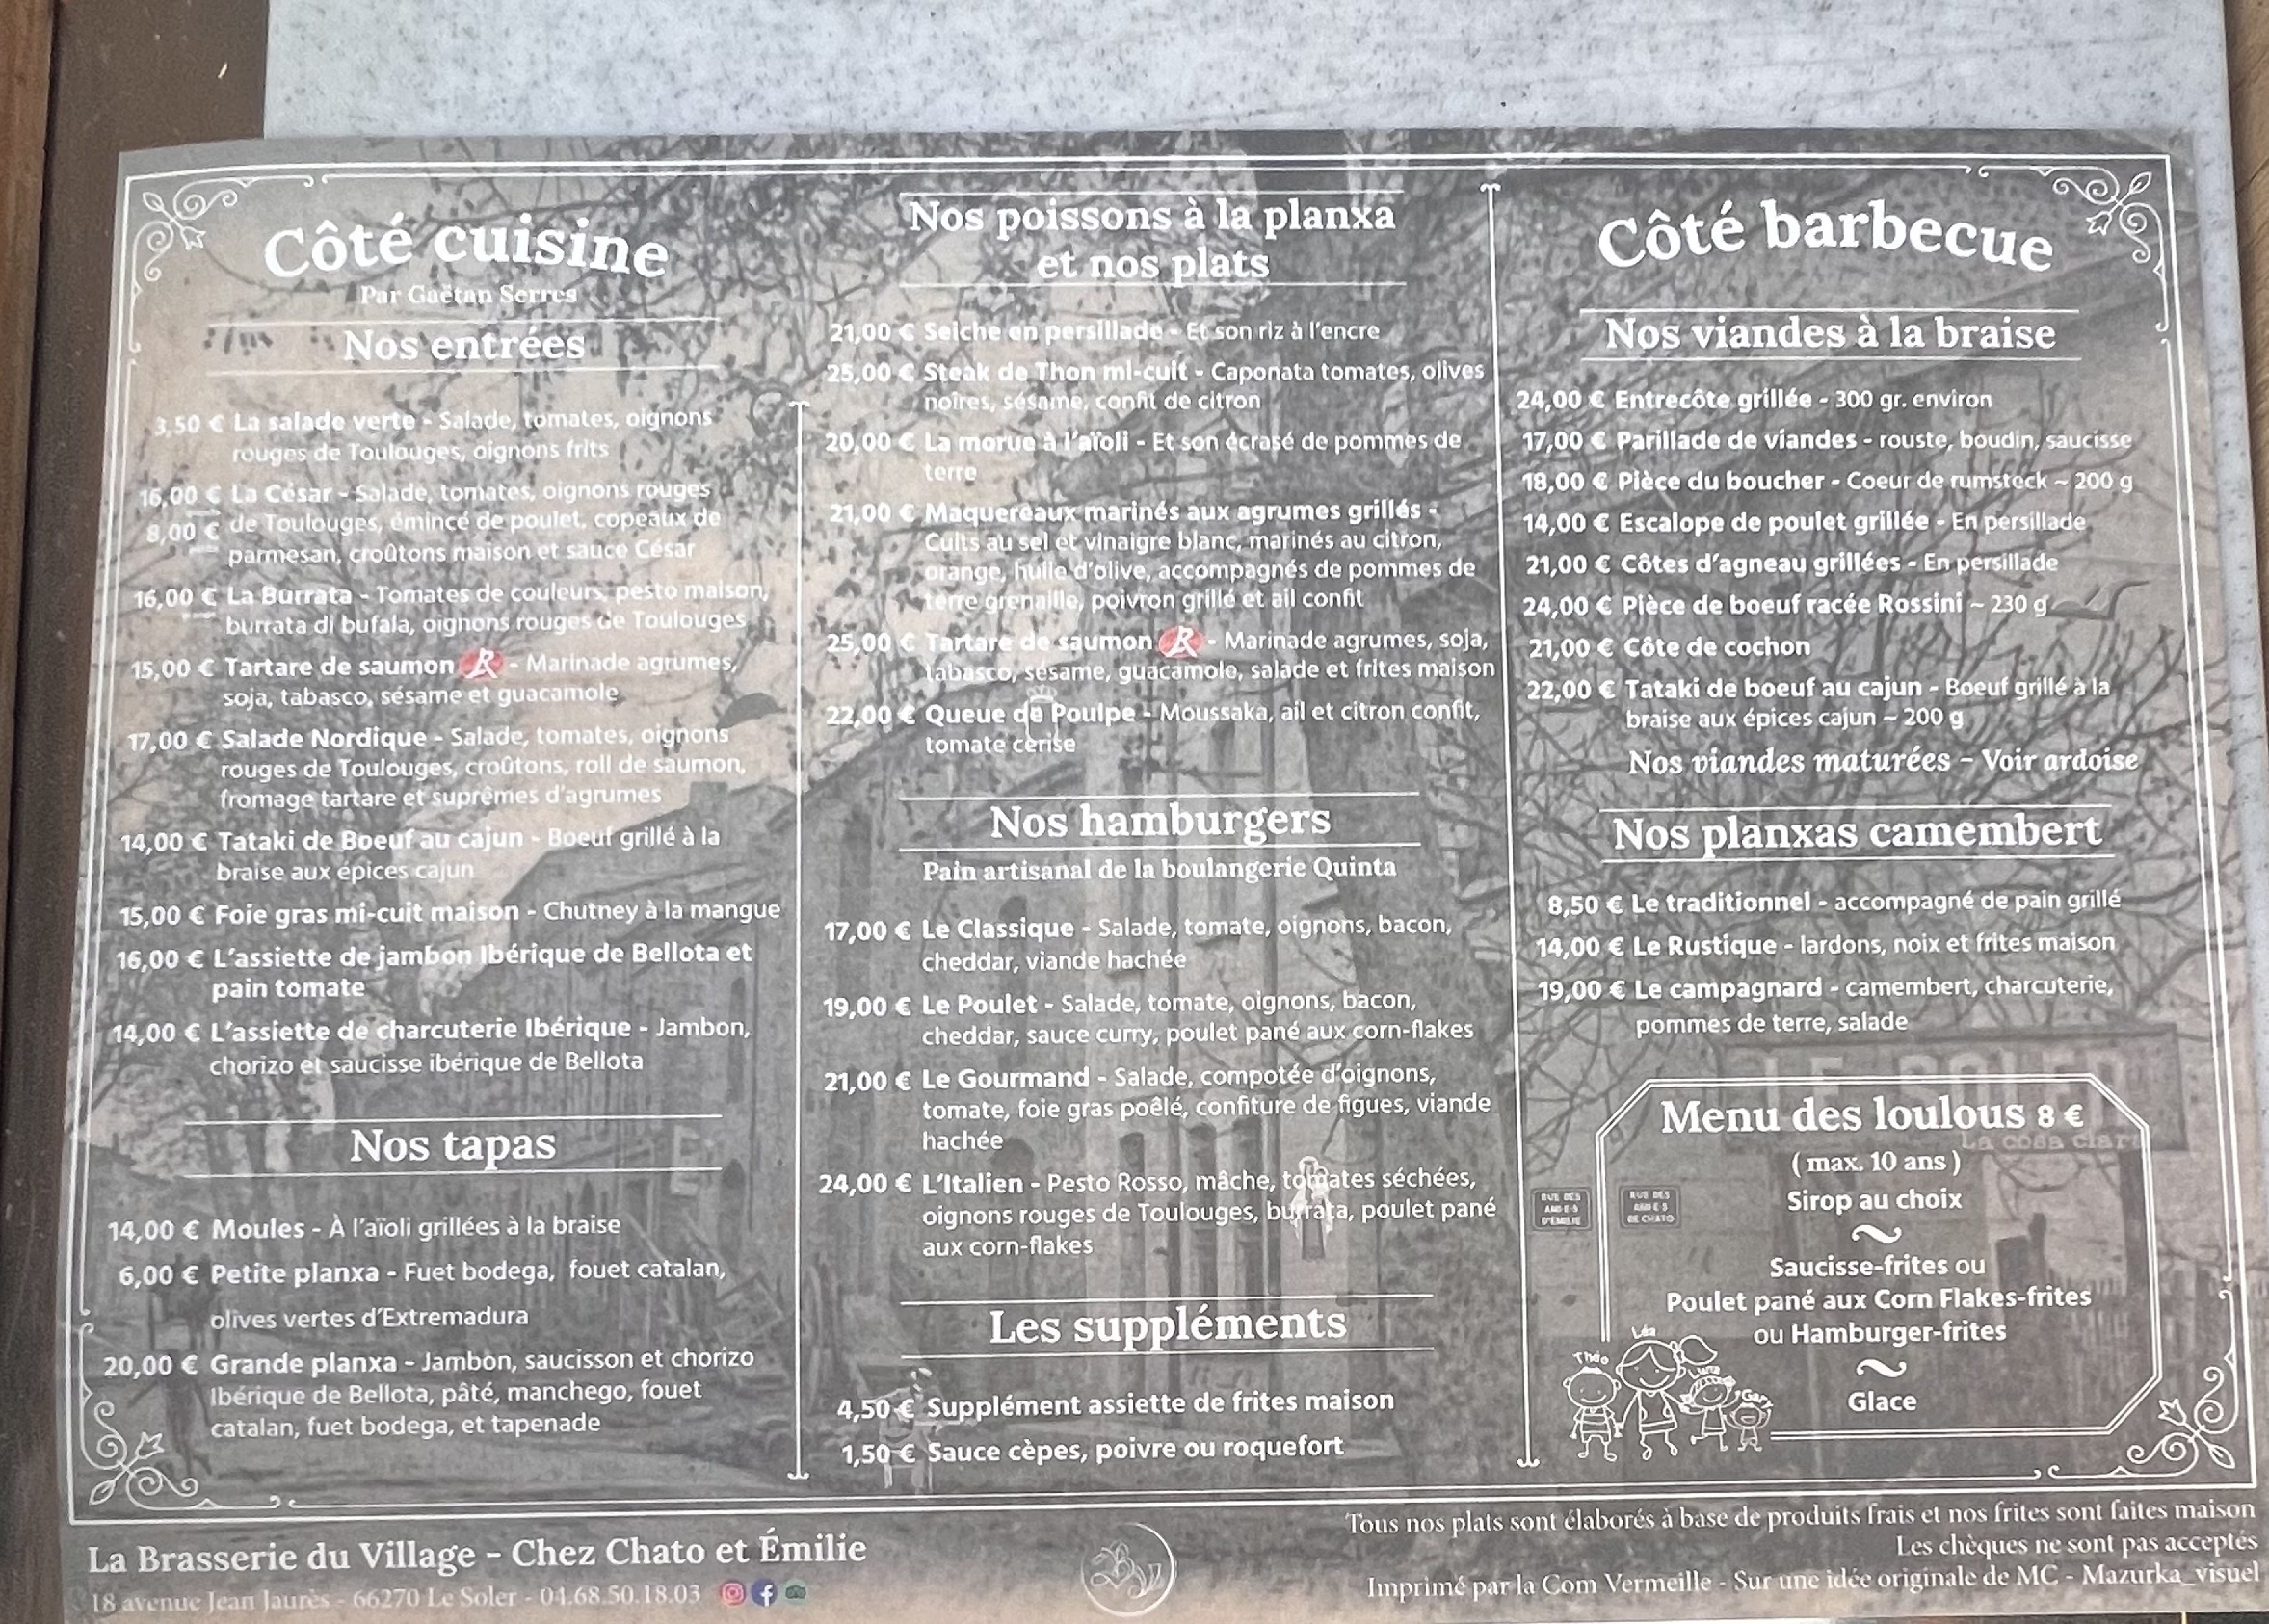 Côté cuisine
Par Gaëtan Serres
Nos entrées
3,50 € La salade verte - Salade, tomates, oignons
rouges de Toulouges, oignons frits
16,00 € La César - Salade, tomates, oignons rouges
8,00 € de Toulouges, émincé de poulet, copeaux de
parmesan, croûtons maison et sauce César
16,00 € La Burrata - Tomates de couleurs, pesto maison,
burrata di bufala, oignons rouges de Toulouges
15,00 € Tartare de saumon R - Marinade agrumes,
soja, tabasco, sésame et guacamole
17,00 € Salade Nordique - Salade, tomates, oignons
rouges de Toulouges, croûtons, roll de saumon,
fromage tartare et suprêmes d'agrumes
14,00 € Tataki de Boeuf au cajun - Boeuf grillé à la
braise aux épices cajun
15,00 € Foie gras mi-cuit maison - Chutney à la mangue
16,00 € L'assiette de jambon Ibérique de Bellota et
pain tomate
14,00 € L'assiette de charcuterie Ibérique - Jambon,
chorizo et saucisse ibérique de Bellota
Nos tapas
14,00 € Moules - À l'aïoli grillées à la braise
6,00 € Petite planxa - Fuet bodega, fouet catalan,
olives vertes d'Extremadura
20,00 € Grande planxa - Jambon, saucisson et chorizo
Ibérique de Bellota, pâté, manchego, fouet
catalan, fuet bodega, et tapenade
Nos poissons à la planxa
et nos plats
21,00 € Seiche en persillade - Et son riz à l'encre
25,00 € Steak de Thon mi-cuit - Caponata tomates, olives
noires, sésame, confit de citron
20,00 € La morue à l'aïoli - Et son écrasé de pommes de
terre
21,00 € Maquereaux marinés aux agrumes grillés -
Cuits au sel et vinaigre blanc, marinés au citron,
orange, huile d'olive, accompagnés de pommes de
terre grenaille, poivron grillé et ail confit
25,00 € Tartare de saumon R - Marinade agrumes, soja,
tabasco, sésame, guacamole, salade et frites maison
22,00 € Queue de Poulpe - Moussaka, ail et citron confit,
tomate cerise
Nos hamburgers
Pain artisanal de la boulangerie Quinta
17,00 € Le Classique - Salade, tomate, oignons, bacon,
cheddar, viande hachée
19,00 € Le Poulet - Salade, tomate, oignons, bacon,
cheddar, sauce curry, poulet pané aux corn-flakes
21,00 € Le Gourmand - Salade, compotée d'oignons,
tomate, foie gras poêlé, confiture de figues, viande
hachée
24,00 € L'Italien - Pesto Rosso, mâche, tomates séchées,
oignons rouges de Toulouges, burrata, poulet pané
aux corn-flakes
Les suppléments
4,50 € Supplément assiette de frites maison
1,50 € Sauce cèpes, poivre ou roquefort
Côté barbecue
Nos viandes à la braise
24,00 € Entrecôte grillée - 300 gr. environ
17,00 € Parillade de viandes - rouste, boudin, saucisse
18,00 € Pièce du boucher - Coeur de rumsteck ~ 200 g
14,00 € Escalope de poulet grillée - En persillade
21,00 € Côtes d'agneau grillées - En persillade
24,00 € Pièce de boeuf racée Rossini ~ 230 g
21,00 € Côte de cochon
22,00 € Tataki de boeuf au cajun - Boeuf grillé à la
braise aux épices cajun ~ 200 g
Nos viandes maturées - Voir ardoise
Nos planxas camembert
8,50 € Le traditionnel - accompagné de pain grillé
14,00 € Le Rustique - lardons, noix et frites maison
19,00 € Le campagnard - camembert, charcuterie,
pommes de terre, salade
LE SOLER
La cosa clara
Menu des loulous 8 €
( max. 10 ans )
Sirop au choix
Saucisse-frites ou
Poulet pané aux Corn Flakes-frites
ou Hamburger-frites
Glace
RUE DES
AMI·E·S
D'ÉMILIE
RUE DES
AMI·E·S
DE CHATO
Théo
Léa
La Brasserie du Village - Chez Chato et Émilie
18 avenue Jean Jaurès - 66270 Le Soler - 04.68.50.18.03
Tous nos plats sont élaborés à base de produits frais et nos frites sont faites maison
Les chèques ne sont pas acceptés
Imprimé par la Com Vermeille - Sur une idée originale de MC - Mazurka_visuel